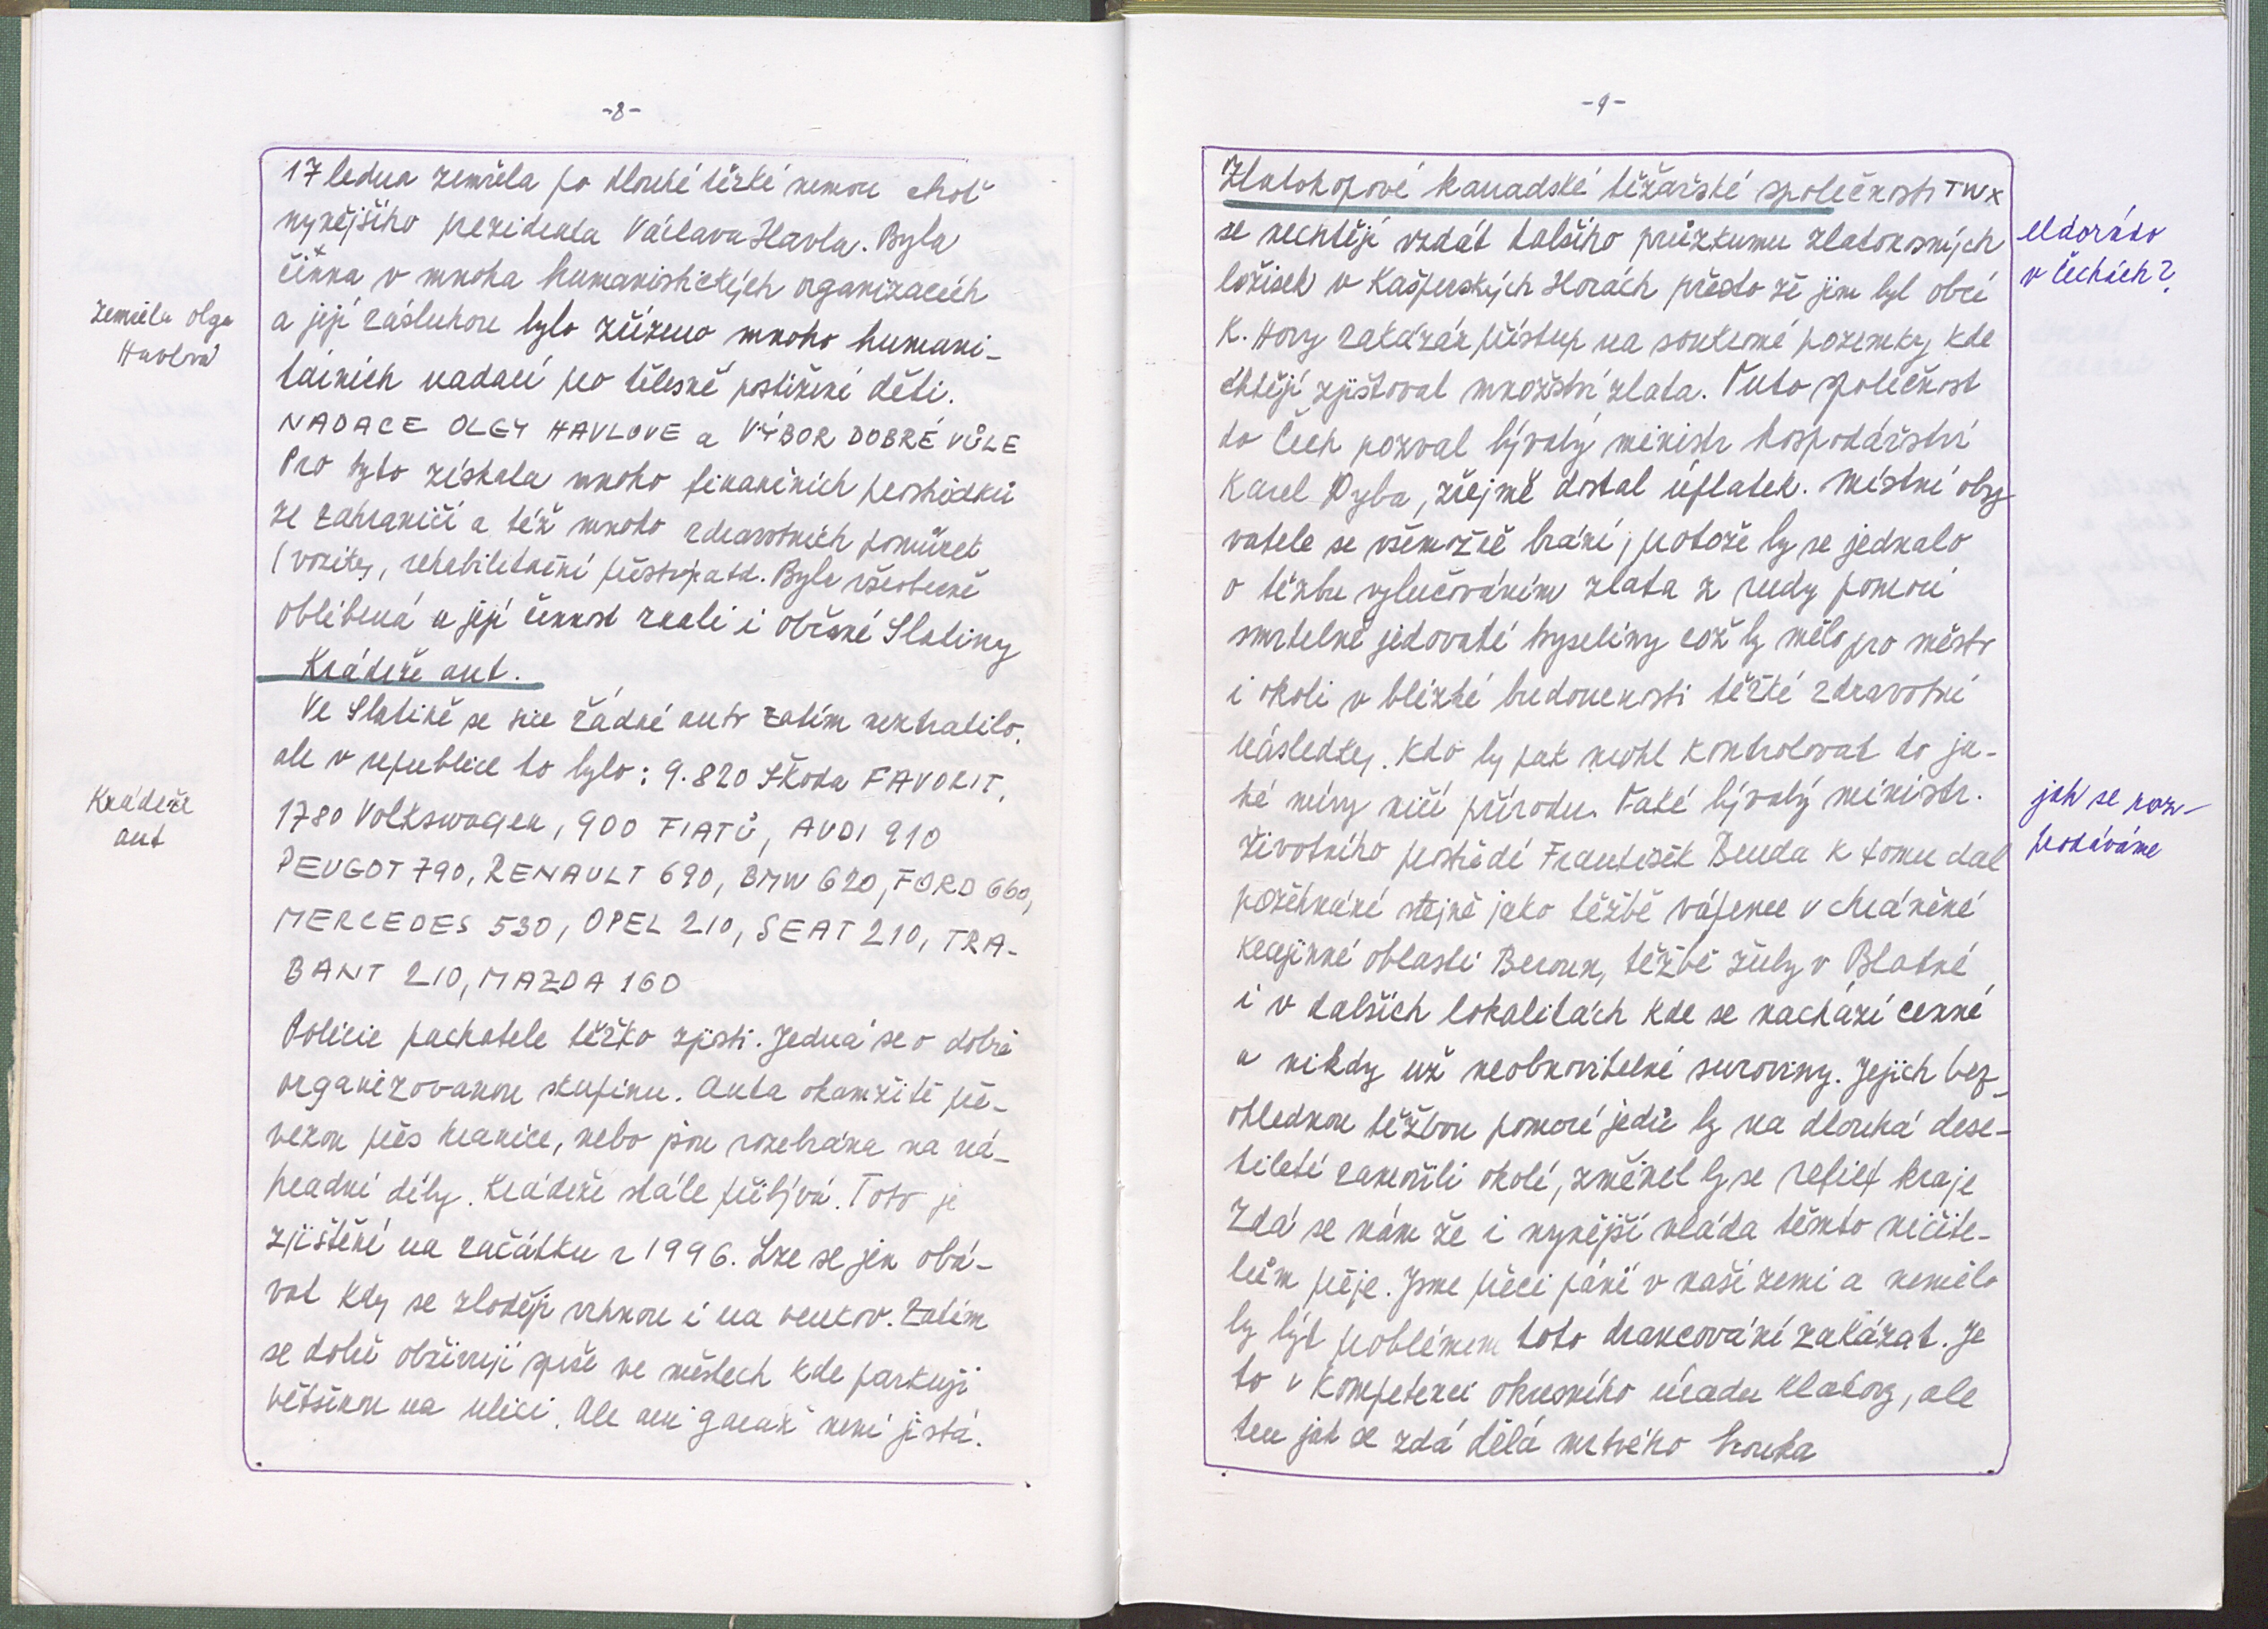 -8-
17 ledna zemřela po dlouhé těžké nemoci choť
nynějšího prezidenta Václava Havla. Byla
činna v mnoha humanistických organizacích
Zemřela Olga
Havlová
a její zásluhou bylo zřízeno mnoho humani-
tárních nadací pro tělesně postižené děti.
NADACE OLGY HAVLOVE a VÝBOR DOBRÉ VŮLE
Pro tyto získala mnoho finančních prostředků
ze zahraničí a též mnoho zdravotních pomůcek
(vozítky, rehabilitační přístroje atd. Byla všeobecně
oblíbená a její činnost znali i občané Slatiny
Krádeže aut.
Ve Slatině se sice žádné auto zatím neztratilo,
ale v republice to bylo: 9.820 Škoda FAVORIT,
Krádeže
aut
1780 Volkswagen, 900 FIATŮ, AUDI 910
PEUGOT 790, RENAULT 690, BMW 620, FORD 660,
MERCEDES 530, OPEL 210, SEAT 210, TRA-
BANT 210, MAZDA 160
Policie pachatele těžko zjistí. Jedná se o dobře
organizovanou skupinu. Auta okamžitě pře-
vezou přes hranice, nebo jsou rozebrána na ná-
hradní díly. Krádeží stále přibývá. Toto je
zjištění na začátku r 1996. Lze se jen obá-
vat kdy se zloději vrhnou i na venkov. Zatím
se dobře obživují spíše ve městech kde parkují
většinou na ulici. Ale ani garáž není jistá.
-9-
Zlatokopové kanadské těžařské společnosti TWX
se nechtějí vzdát dalšího průzkumu zlatonosných
eldorádo
v Čechách?
ložisek v Kašperských Horách přesto že jim byl obcí
K. Hory zakázán přístup na soukromé pozemky kde
chtějí zjišťovat množství zlata. Tuto společnost
do Čech pozval bývalý ministr hospodářství
Karel Dyba, zřejmě dostal úplatek. Místní oby
vatele se všemožně brání, protože by se jednalo
o těžbu vylučováním zlata z rudy pomocí
smrtelně jedovaté kyseliny což by mělo pro město
i okolí v blízké budoucnosti těžké zdravotní
následky. Kdo by pak mohl kontrolovat do ja-
ké míry ničí přírodu. Také bývalý ministr.
jak se roz-
prodáváme
životního prostředí František Benda k tomu dal
požehnání stejně jako těžbě vápence v chráněné
krajinné oblasti Beroun, těžbě žuly v Blatné
i v dalších lokalitách kde se nachází cenné
a nikdy už neobnovitelné suroviny. Jejich bez-
ohlednou těžbou pomocí jedů by na dlouhá dese-
tiletí zamořili okolí, změnil by se reliéf kraje
Zdá se nám že i nynější vláda těmto ničite-
lům přeje. Jsme přeci páni v naší zemi a nemělo
by být problémem toto drancování zakázat. Je
to v kompetenci okresního úřadu Klatovy, ale
ten jak se zdá dělá mrtvého brouka